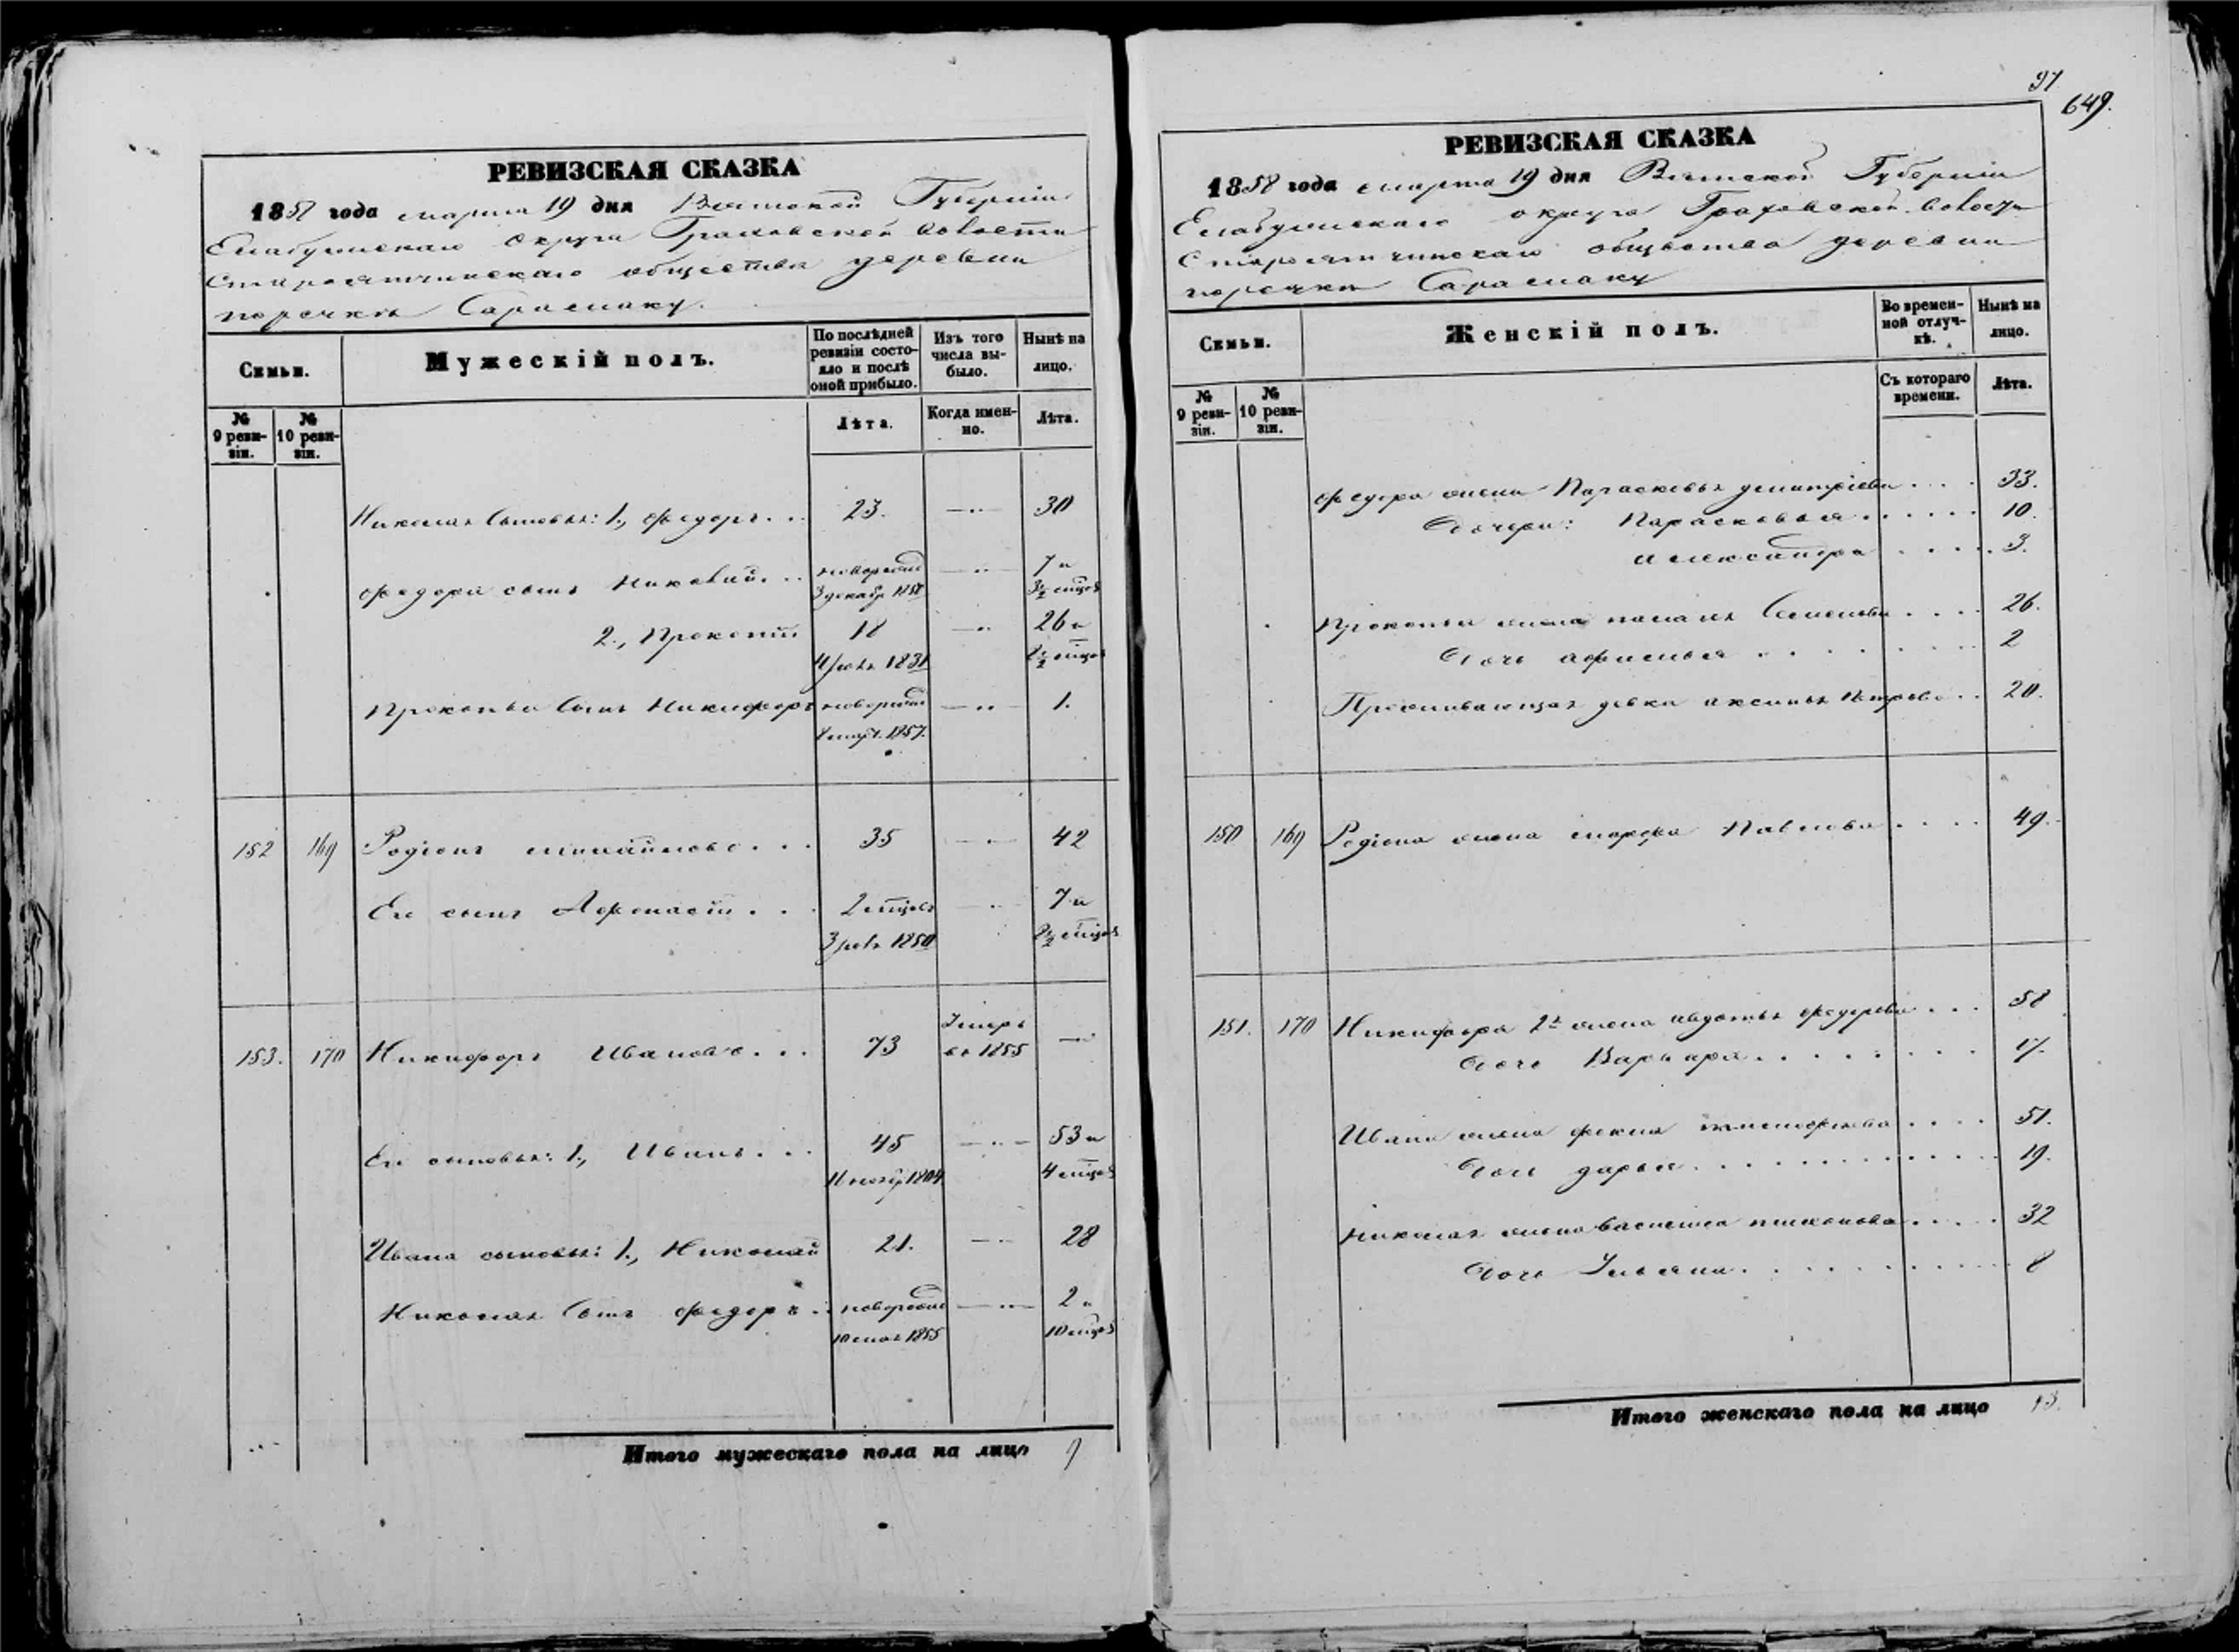 РЕВИЗСКАЯ СКАЗКА
1858 года марта 19 дня Вятской Губернiи
Елабужскаго округа Граховской волости
Староятчинскаго общества деревни
по речкѣ Сарамаку.
Семьи.
Мужескiй полъ.
По послѣдней ревизiи состояло и послѣ оной прибыло.
Изъ того числа выбыло.
Нынѣ на лицо.
№ 9 ревизiи.
№ 10 ревизiи.
Лѣта.
Когда именно.
Лѣта.
Николая сыновья: 1., Федоръ . . . 23. —"— 30
Федора сынъ Николай . . . новорожд —"— 7 и
3 декабр 1850 3½ мѣцов
2., Прокопiй 18 —"— 26 и
1831 ½ мѣцов
Прокопья сынъ Никифоръ новорожд —"— 1.
8 март. 1857.
152 169 Родiонъ Михайловъ . . . 35 —"— 42
Его сынъ Афонасiй . . . 2 мѣцовъ " 7 и
1850 ½ мѣцов
153. 170 Никифоръ Ивановъ . . . 73 Умеръ въ 1855 —"
Его сыновья: 1., Иванъ . . . 45 —"— 53 и
ноябр 1804 4 мѣцов
Ивана сыновья: 1., Николай 21. —"— 28
Николая сынъ Федоръ . . новорожд —"— 2 и
10 мая 1855 10 мѣцов
Итого мужескаго пола на лицо 9
97
649.
РЕВИЗСКАЯ СКАЗКА
1858 года марта 19 дня Вятской Губернiи
Елабужскаго округа Граховской волости
Староятчинскаго общества деревни
по речкѣ Сарамаку
Семьи.
Женскiй полъ.
Во временной отлучкѣ.
Нынѣ на лицо.
№ 9 ревизiи.
№ 10 ревизiи.
Съ котораго времени.
Лѣта.
Федора жена Парасковья Дмитрiева . . . . 33.
Дочери: Парасковья . . . . . . 10.
Александра . . . . . 3.
Прокопья жена Семенова . . . . 26.
Дочь Афимья . . . . . . . . 2
Проживающая девка Аксинья Петрова . . 20.
150 169 Родiона жена Марфа Павлова . . . . 49.
151. 170 Никифора 2я жена Авдотья Федорова . . . 58
Дочь Варвара . . . . . . . . 17.
Ивана жена Фекла . . . . 51.
Дочь Дарья . . . . . . . . . . . 19.
Николая жена Василиса . . . . . 32
Дочь Ульяна . . . . . . . . . . 8
Итого женскаго пола на лицо 13.